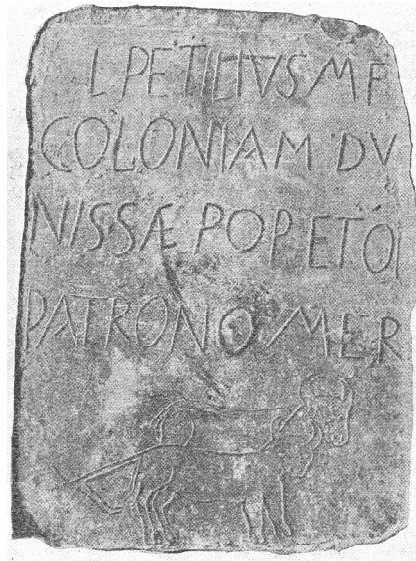 L PETILIVS M F
COLONIAM DV
NISSÆ POP ET OI
PATRONO MER